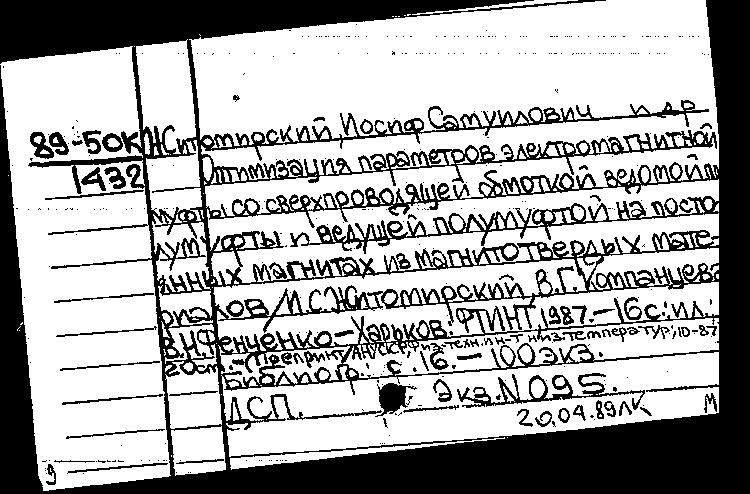 89-50К Житомирский, Иосиф Самуилович и др
1432 Оптимизация параметров электромагнитной
муфты со сверхпроводящей обмоткой ведомой по
лумуфты и ведущей полумуфтой на посто
янных магнитах из магнитотвердых мате-
риалов/И.С.Житомирский, В.Г. Компанцева
В.Н.Фенченко.-Харьков: ФТИНТ, 1987.-16с.:ил.;
20см.-(Препринт/АН УССР, Физ.-техн. ин-т низ. температур; 10-87
Библиогр.: с. 16.- 100 экз.
ДСП. Экз. N 095.
20.04.89 ЛК М
9